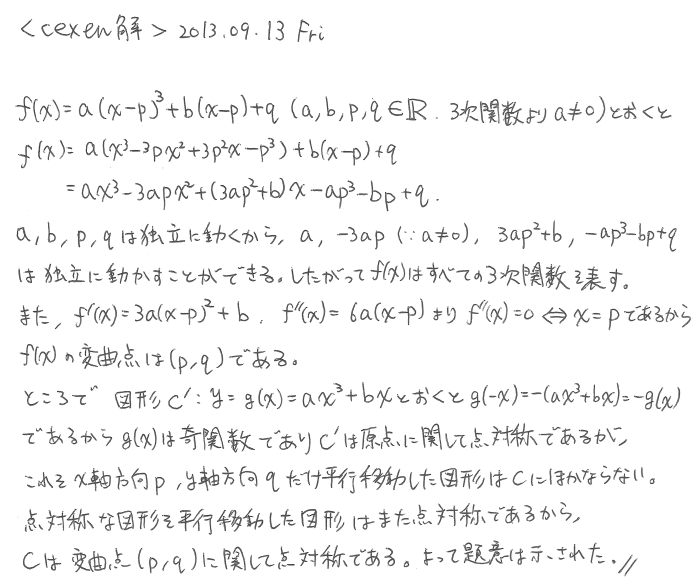 <cexen解> 2013.09.13 Fri
f(x)=a(x-p)³+b(x-p)+q (a,b,p,q∈ℝ. 3次関数よりa≠0)とおくと
f(x)= a(x³-3px²+3p²x-p³)+b(x-p)+q
=ax³-3apx²+(3ap²+b)x-ap³-bp+q.
a,b,p,qは独立に動くから, a, -3ap (∵a≠0), 3ap²+b, -ap³-bp+q
は独立に動かすことができる。したがってf(x)はすべての3次関数を表す。
また, f'(x)=3a(x-p)²+b, f''(x)=6a(x-p)より f''(x)=0 ⇔ x=pであるから
f(x)の変曲点は(p,q)である。
ところで 図形C':y=g(x)=ax³+bxとおくとg(-x)=-(ax³+bx)=-g(x)
であるからg(x)は奇関数でありC'は原点に関して点対称であるが,
これをx軸方向p,y軸方向qだけ平行移動した図形はCにほかならない。
点対称な図形を平行移動した図形はまた点対称であるから,
Cは変曲点(p,q)に関して点対称である。よって題意は示された.//